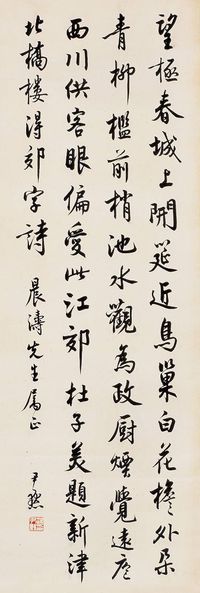 望極春城上開筵近鳥巢白花檐外朵
青柳檻前梢池水觀為政厨煙覺遠庖
西川供客眼偏愛此江郊杜子美題新津
北橋樓得郊字詩 晨濤先生屬正 尹默